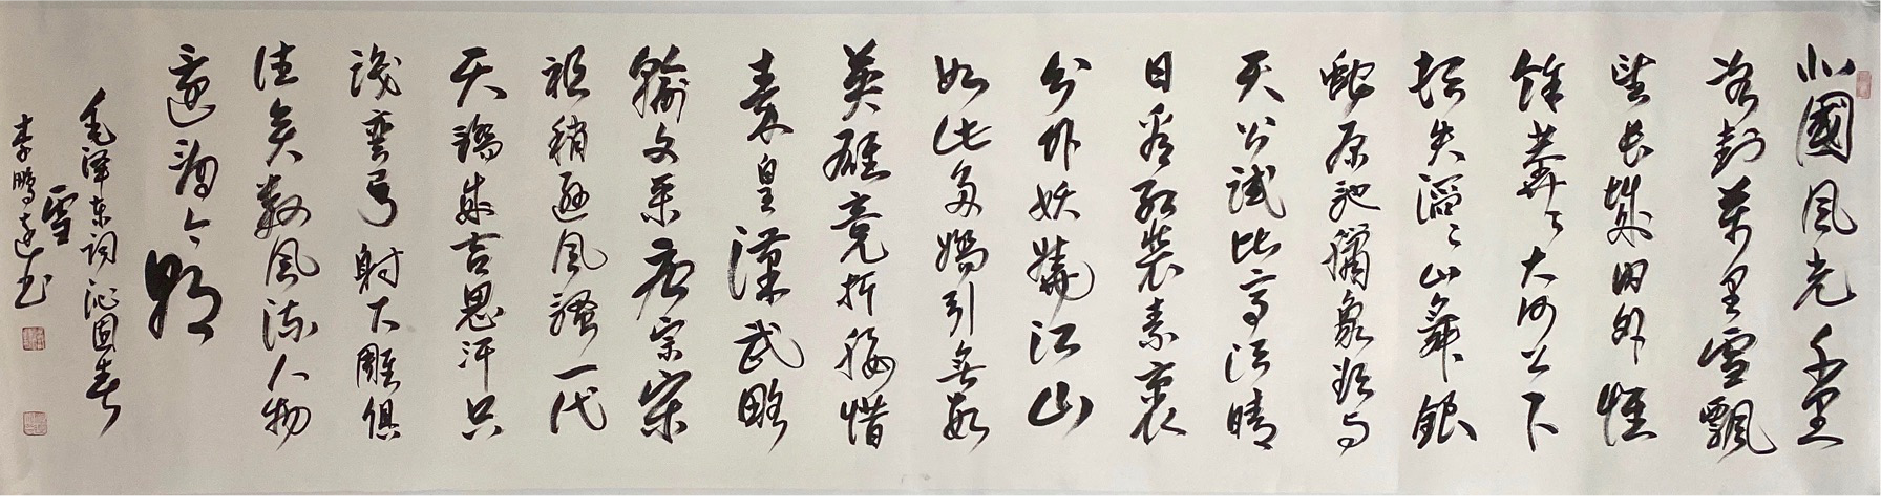 北國風光千里
冰封萬里雪飄
望長城内外惟
餘莽々大河上下
頓失滔々山舞銀
蛇原馳臘象欲与
天公試比高须晴
日看紅裝素裹
分外妖嬈江山
如此多嬌引無數
英雄竞折腰惜
秦皇漢武略
輸文采唐宗宋
祖稍遜風騷一代
天驕成吉思汗只
識彎弓射大雕俱
往矣數風流人物
還看今朝
毛泽东词沁园春
雪
李鹏达书